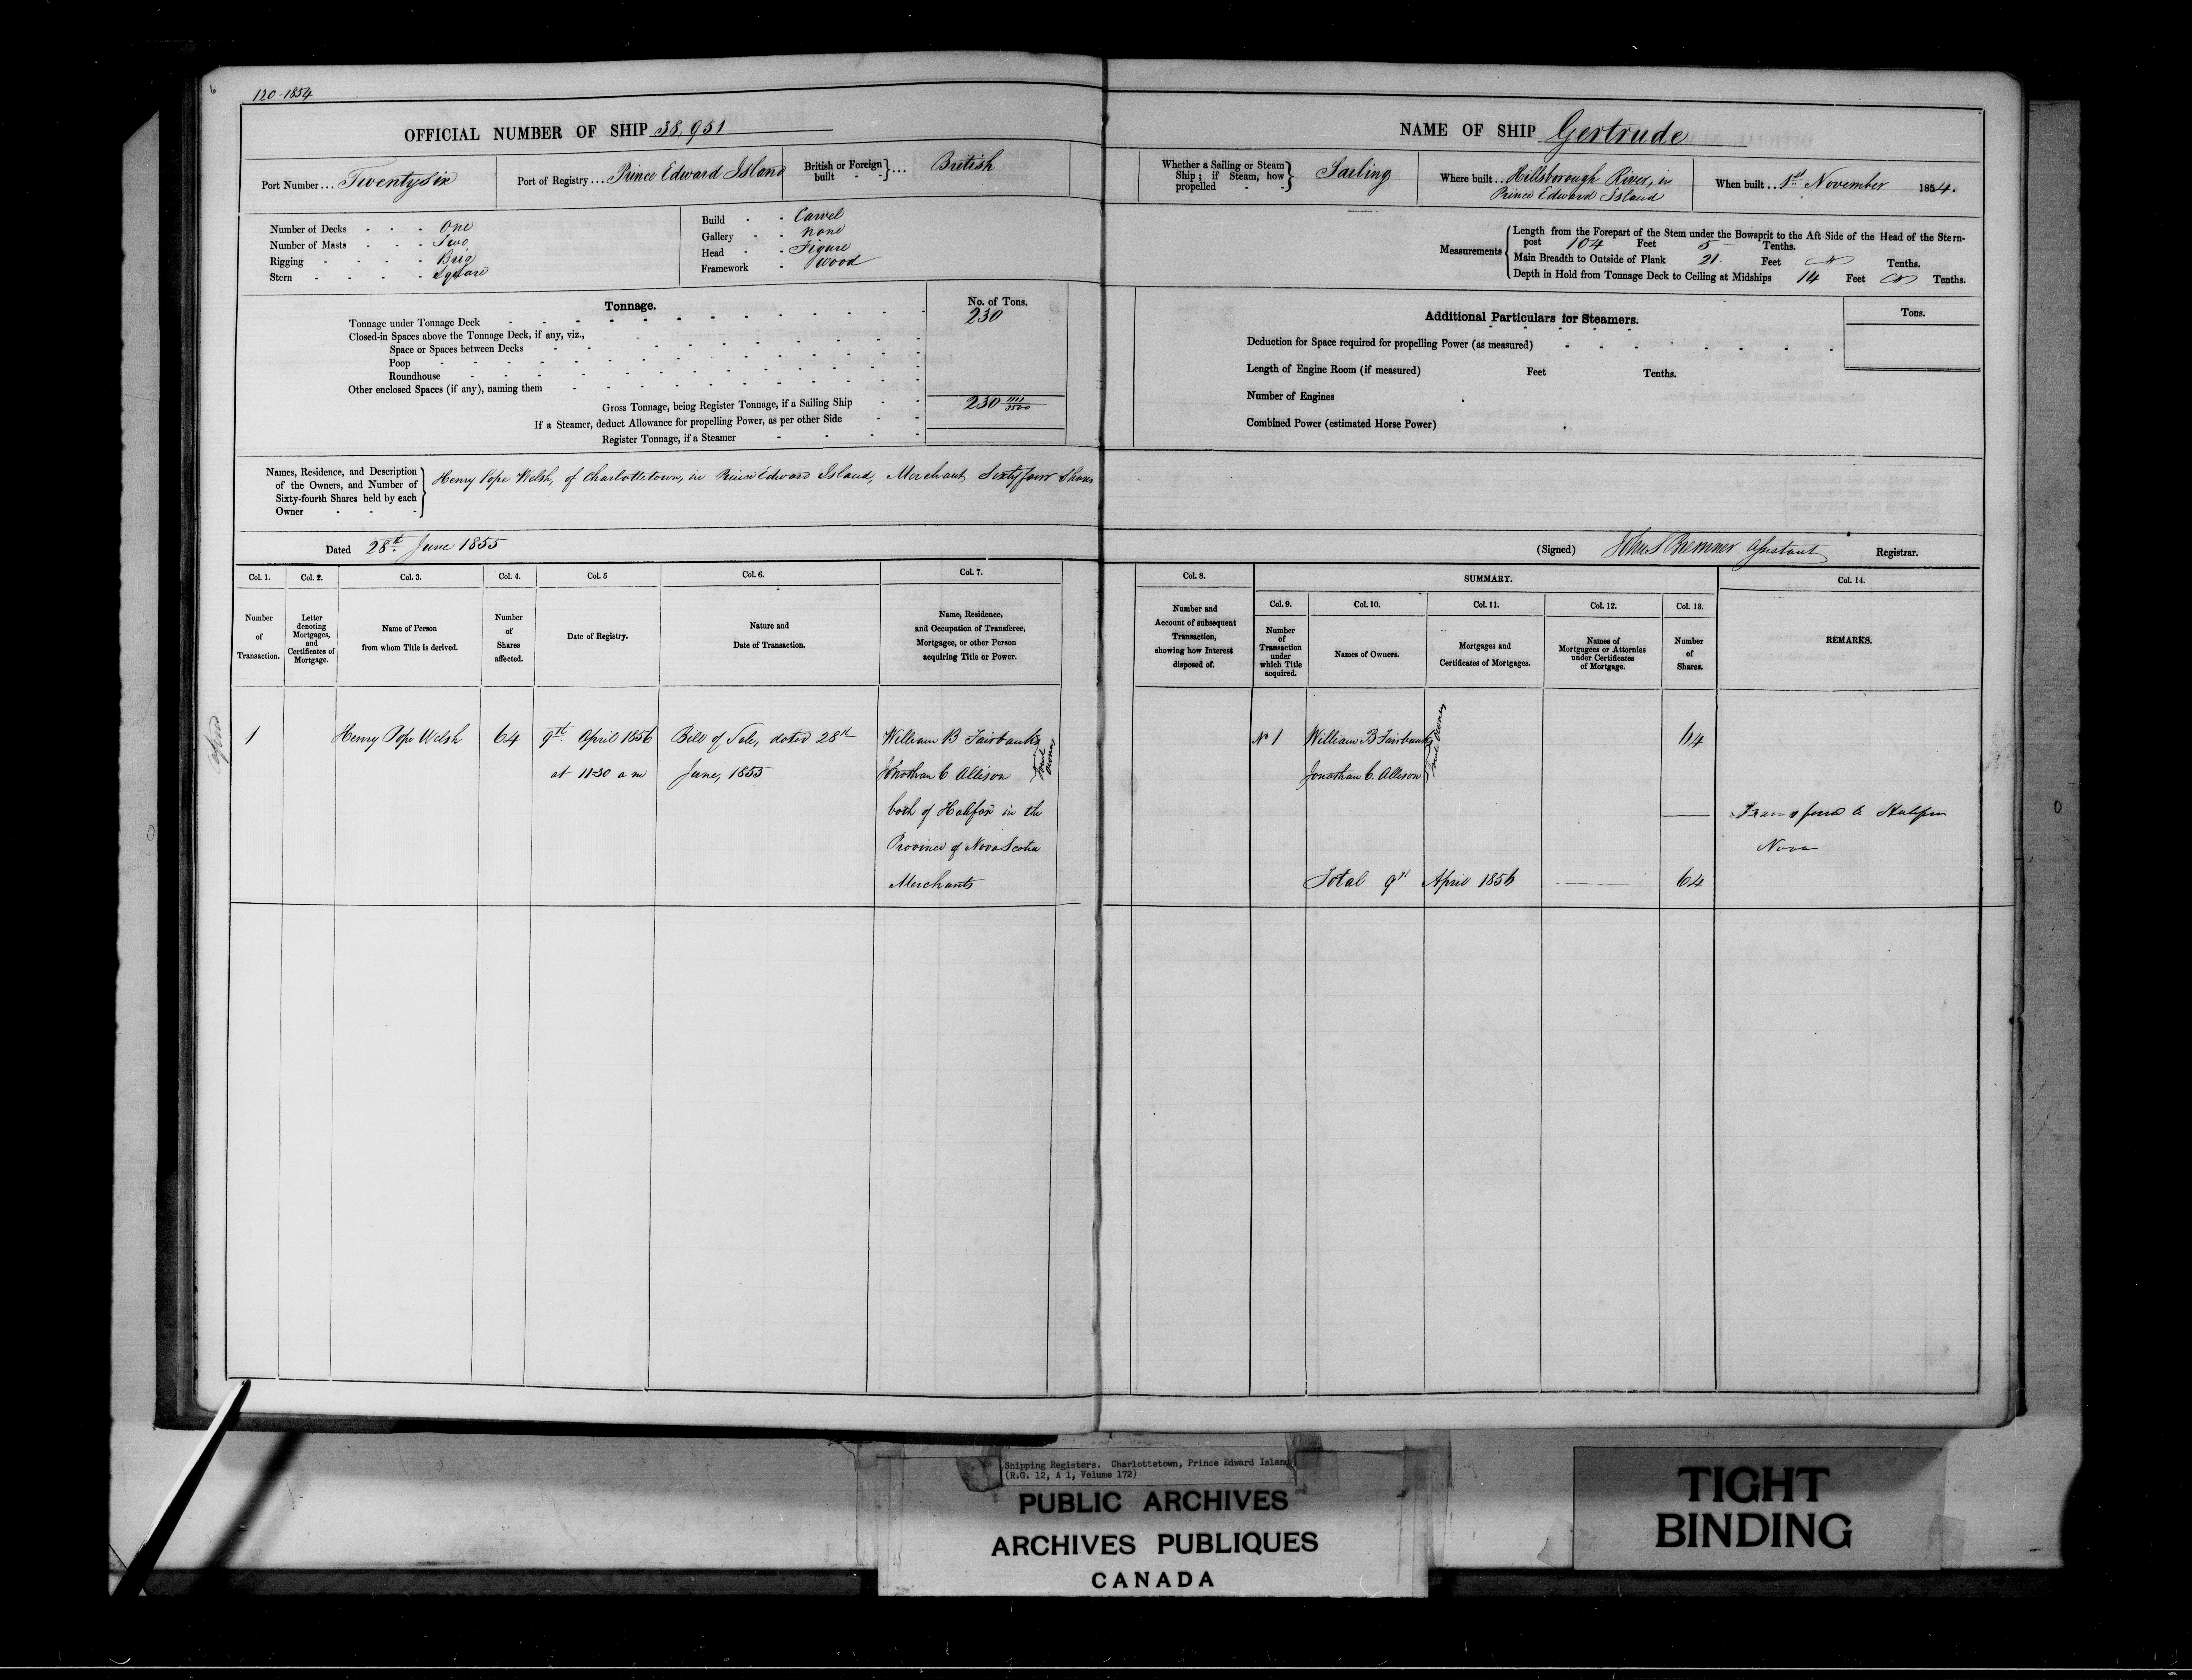 6
120-1854
OFFICIAL NUMBER OF SHIP 38,951
Port Number... Twentysix
Port of Registry... Prince Edward Island
British or Foreign built } ... British
Number of Decks - - - One
Number of Masts - - - Two
Rigging - - - - Brig
Stern - - - - Square
Build - - Carvel
Gallery - - none
Head - - Figure
Framework - wood
Tonnage.
No. of Tons.
Tonnage under Tonnage Deck 230
Closed-in Spaces above the Tonnage Deck, if any, viz.,
Space or Spaces between Decks
Poop
Roundhouse
Other enclosed Spaces (if any), naming them
Gross Tonnage, being Register Tonnage, if a Sailing Ship 230
If a Steamer, deduct Allowance for propelling Power, as per other Side
Register Tonnage, if a Steamer
Names, Residence, and Description
of the Owners, and Number of
Sixty-fourth Shares held by each
Owner
Henry Pope Welsh, of Charlottetown, in Prince Edward Island, Merchant Sixty four Shares
Dated 28th June 1855
Col. 1. Col. 2. Col. 3. Col. 4. Col. 5 Col. 6. Col. 7.
Number of Transaction.
Letter denoting Mortgages, and Certificates of Mortgage.
Name of Person from whom Title is derived.
Number of Shares affected.
Date of Registry.
Nature and Date of Transaction.
Name, Residence, and Occupation of Transferee, Mortgagee, or other Person acquiring Title or Power.
1 Henry Pope Welsh 64 9th April 1856 Bill of Sale, dated 28th William B Fairbanks
at 11-30 a m June, 1855 Jonathan C Allison
Joint Owners
both of Halifax in the
Province of Nova Scotia
Merchants
NAME OF SHIP Gertrude
Whether a Sailing or Steam Ship; if Steam, how propelled } Sailing
Where built... Hillsborough River, in
Prince Edward Island
When built... 1st November 1854.
Measurements
Length from the Forepart of the Stem under the Bowsprit to the Aft Side of the Head of the Stern-
post 104 Feet 5 Tenths.
Main Breadth to Outside of Plank 21 Feet Tenths.
Depth in Hold from Tonnage Deck to Ceiling at Midships 14 Feet Tenths.
Additional Particulars for Steamers.
Tons.
Deduction for Space required for propelling Power (as measured)
Length of Engine Room (if measured) Feet Tenths.
Number of Engines
Combined Power (estimated Horse Power)
(Signed) John S Bremner Assistant Registrar.
Col. 8. SUMMARY. Col. 14.
Col. 9. Col. 10. Col. 11. Col. 12. Col. 13.
Number and Account of subsequent Transaction, showing how Interest disposed of.
Number of Transaction under which Title acquired.
Names of Owners.
Mortgages and Certificates of Mortgages.
Names of Mortgagees or Attornies under Certificates of Mortgage.
Number of Shares.
REMARKS.
No 1 William B Fairbanks
Jonathan C. Allison
Joint Owners
Nova
Total 9th April 1856 64
Shipping Registers. Charlottetown, Prince Edward Island
(R.G. 12, A 1, Volume 172)
PUBLIC ARCHIVES
ARCHIVES PUBLIQUES
CANADA
TIGHT
BINDING